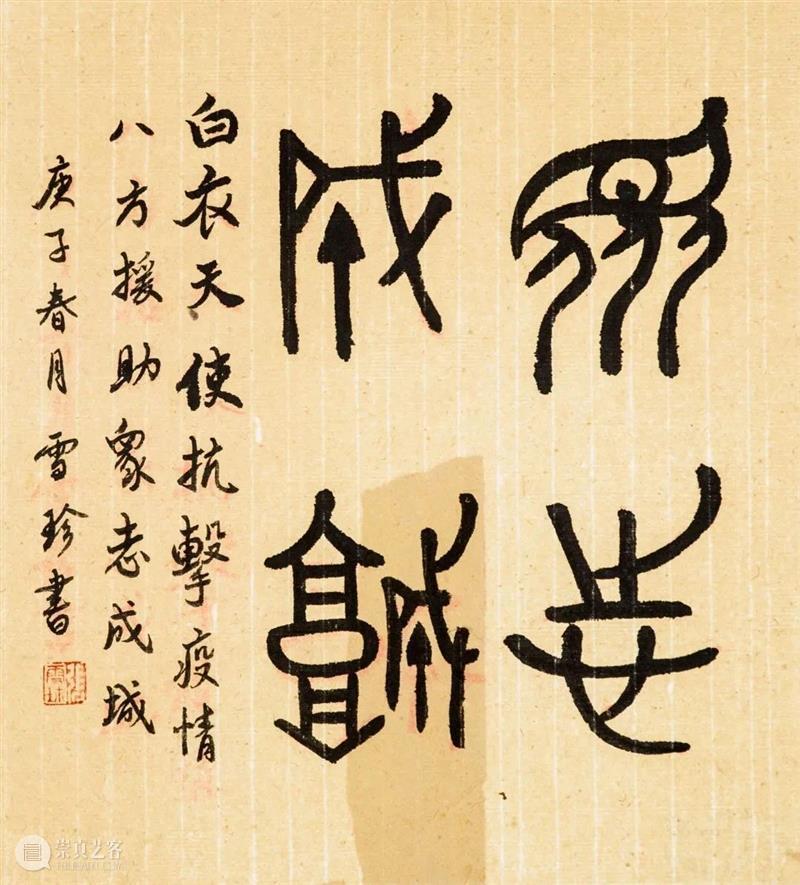 眾志
成城
白衣天使抗擊疫情
八方援助眾志成城
庚子春月雪珍書
崇真艺客